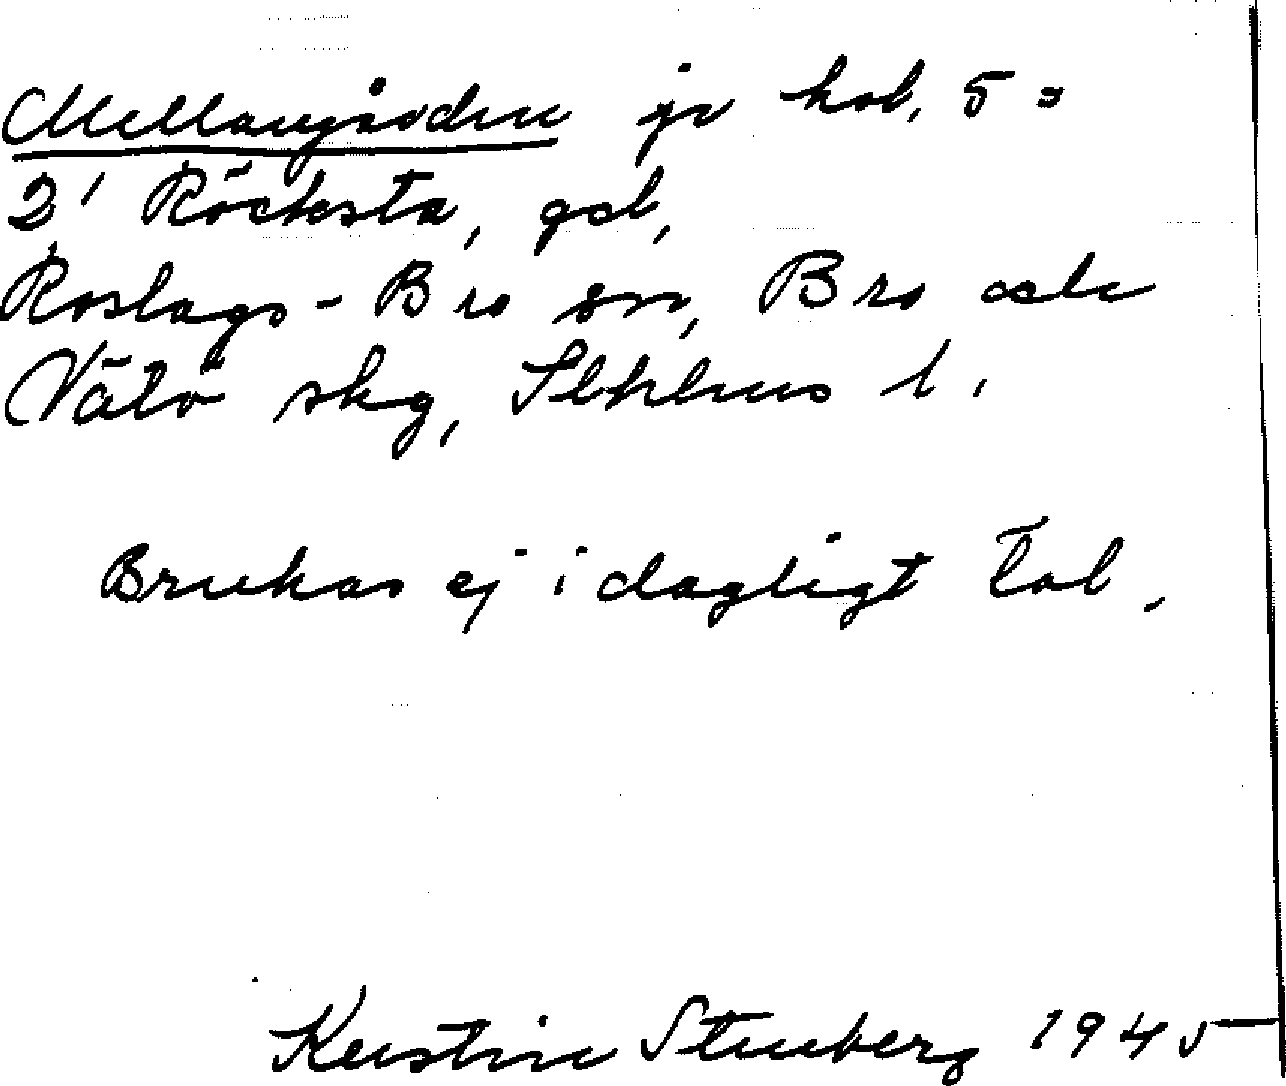 Mellangården på kab. 5 =
2' Röcksta, gd,
Roslags-Bro sn, Bro och
Vätö skg, Sthlms l.
Brukas ej i dagligt tal.
Kerstin Stenberg 1945